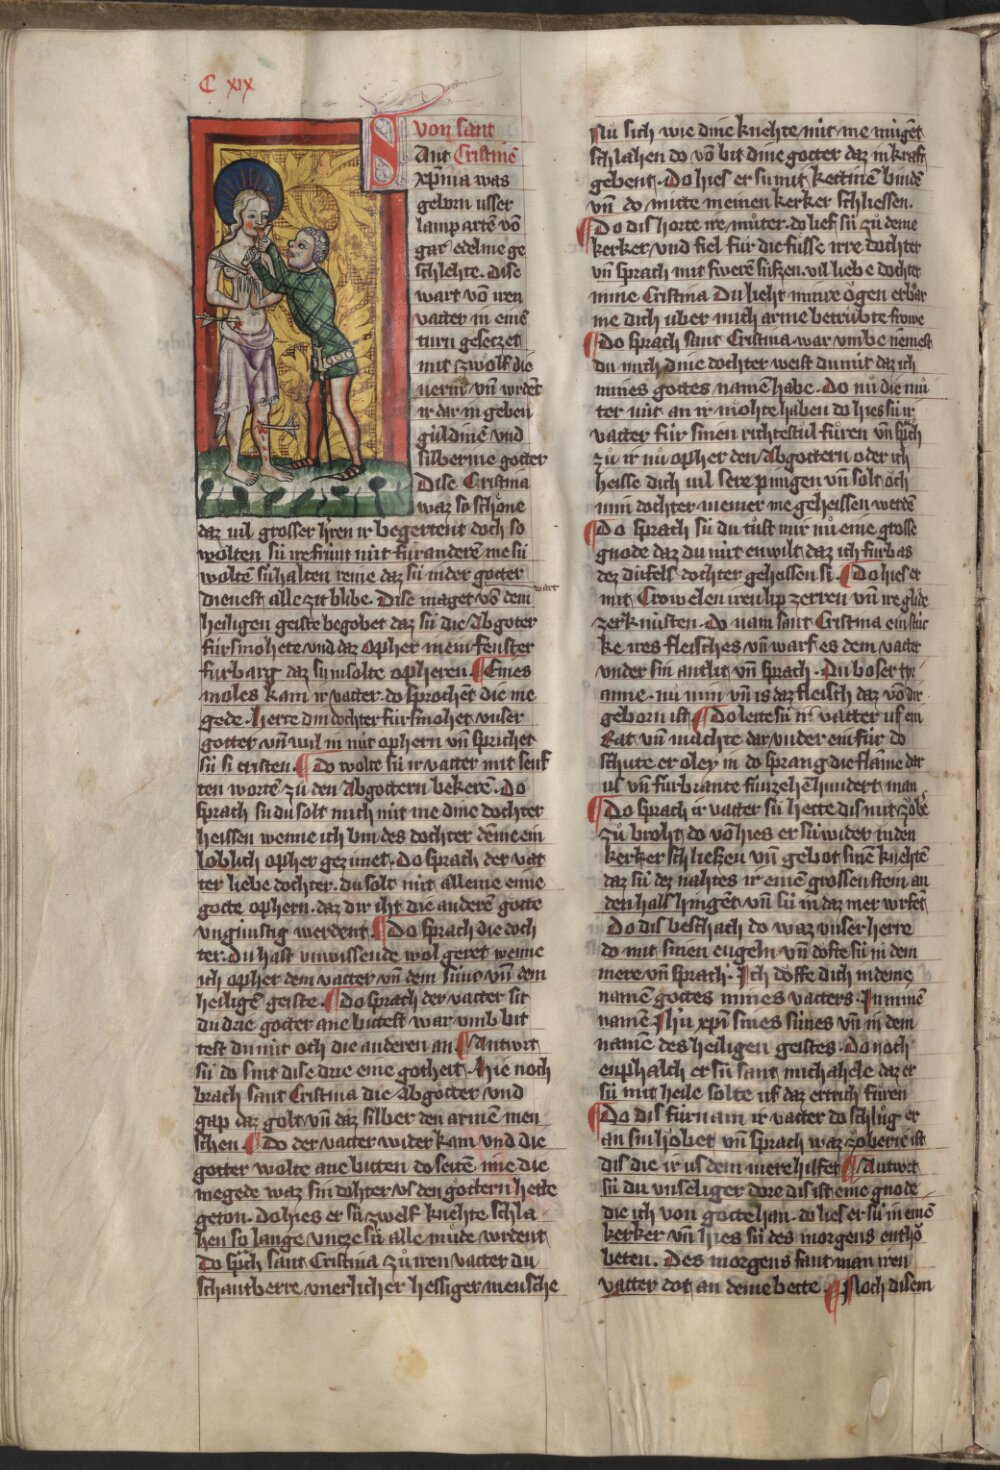 C xıx
Von sant
Ant Cristinē
xp̄ina was
geborn vsser
lamparten vō
gar edelme ge
schlehte. Dise
wart vō iren
vatter in eine
turn gesetzet
mit zwölf die
nerin vn̄ wrdēt
ir dar in geben
guldine vnd
silberine gotter
Dise Cristina
waz so schöne
daz vil grosser h̄ren ir begertent doch so
wolten sú ire frúnt nút fúr andere me sú
wolte sú halten reine daz sú in der gotter
dienest alle zit blibe. Dise maget wart vō dem
heiligen geiste begobet daz sú die Abgoter
fúrsmohete vnd daz opher in ein fenster
fúrbarg daz sú in solte opheren. ¶ Eines
moles kam ir vatter. do sprochēt die me
gede. herre din dochter fúrsmohet vnser
gotter vn̄ wil in nút ophern vn̄ sprichet
sú si cristen. ¶ Do wolte sú ir vatter mit senf
ten wortē zů den Abgottern bekerē. Do
sprach sú du solt mich nút me dine dochter
heissen wenne ich bin des dochter dē me ein
loblich opher gezimet. Do sprach der vat
ter liebe dochter. du solt nút alleine eime
gotte ophern. daz dir iht die anderē gotte
vngúnstig werdent. ¶ Do sprach die doch
ter. Du hast vnwissende wol geret wenne
ich opher dem vatter vn̄ dem sune vn̄ dem
heiligē geiste. ¶ Do sprach der vatter sit
du drie gotter ane bittest war vmb bit
test du nút och die anderen an ¶ Antwrt
sú do sint dise drie eine gotheit. Hie noch
brach sant Cristina die Abgötter vnd
gap daz golt vn̄ daz silber den armē men
schen ¶ Do der vatter wider kam vnd die
gotter wolte ane bitten do seitē ime die
megede waz sin dohter vs den göttern hette
geton. Do hies er sú zwelf knehte schla
hen so lange vntze sú alle můde wrdent
Do sp̄ch sant Cristina zů iren vatter du
schantberre vnerlicher heissiger mensche
Nu sich wie dine knehte mit me múgēt
schlahen do vō bit dine gotter daz in kraft
gebent. Do hies er sú mit kettinē bindē
vn̄ do mitte in einen kerker schliessen.
¶ Do dis horte ire můter. do lief sú zů deme
kerker vnd fiel fúr die fússe irre dochter
vn̄ sprach mit swerē súfzen. vil liebe dochter
mine Cristina Du lieht minre ögen erbar
me dich uber mich arme betrúbte frowe
¶ Do sprach sant Cristina war vmbe nemest
du mich dine dochter weist du nút daz ich
mines gottes namē habe. Do nú die mů
ter nút an ir mohte haben do hies sú ir
vatter fúr sinen richtestůl fůren vn̄ sp̄ch
zů ir nú opher den Abgottern oder ich
heisse dich vil sere pinigen vn̄ solt och
min dochter niemer me geheissen werdē
¶ Do sprach sú du tůst mir nů eine grosse
gnode daz du nút enwilt daz ich fúrbas
dez dúfels dochter geheissen si. ¶ Do hies er
mit Crowelen iren lip zerren vn̄ ire glide
zerknústen. Do nam sant Cristina ein stúc
ke ires fleisches vn̄ warf es dem vatter
vnder sin antlit vn̄ sprach. Du böser tyr
anne. nú nim vn̄ is daz fleisch daz vō dir
geborn ist ¶ Do leite sú ir vatter uf ein
Rat vn̄ machte dar vnder ein fúr do
schute er oley in do sprang die flāme dar
us vn̄ fúrbrante fúnzehē hundert man.
¶ Do sprach ir vatter sú hette dis mit zöbe
zů broht do vō hies er sú wider in den
kerker schliezen vn̄ gebot sinē knehtē
daz sú dez nahtes ir einē grossen stein an
den hals hingēt vn̄ sú in daz mer wrfēt
Do dis beschach do waz vnser herre
do mit sinen engeln vn̄ dofte sú in dem
mere vn̄ sprach. Ich döffe dich in deme
namē gottes mines vatters. In minē
namē Ih̄u xp̄i sines sunes vn̄ in dem
name des heiligen geistes. Do noch
enphalch er sú sant michahele daz er
sú mit heile solte uf daz ertrich fúren
¶ Do dis fúrnam ir vatter do schlůg er
an sin höbet vn̄ sprach waz zöberie ist
dis die ir us dem mere hilfet ¶ Antwrt
sú du vnseliger dore dis ist eine gnode
die ich von gotte han. do lies er sú in einē
kerker vn̄ hies sú des morgens enthö
beten. Des morgens fant man iren
vatter dot an deme bette ¶ Noch disem